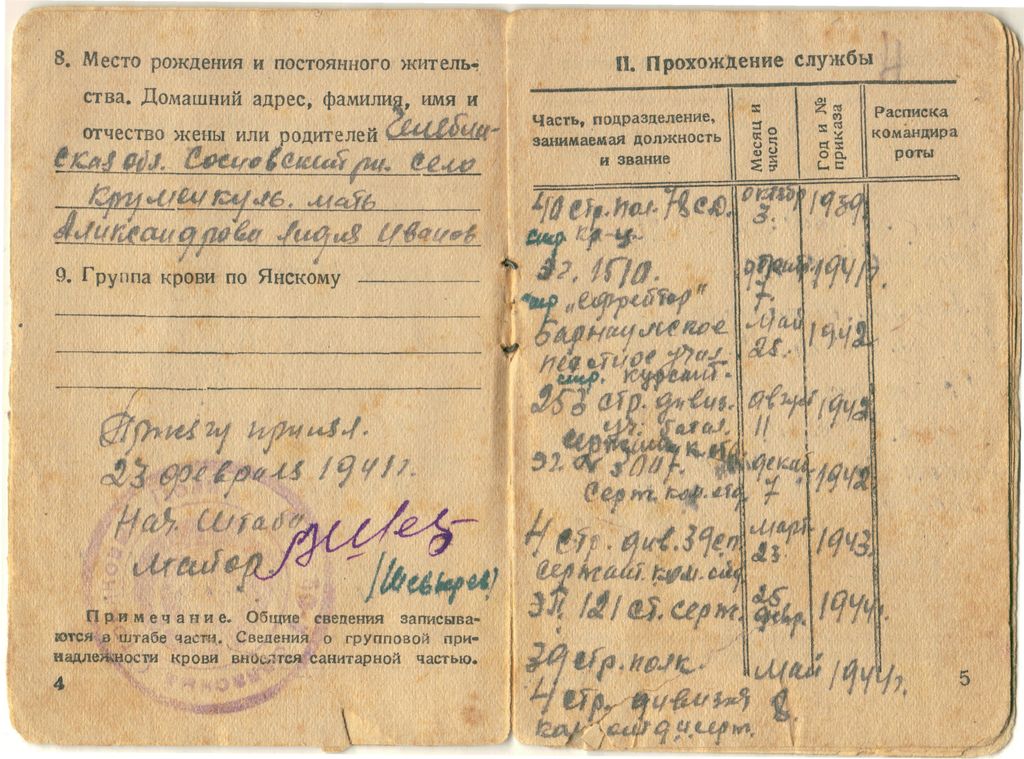 8. Место рождения и постоянного житель-
ства. Домашний адрес, фамилия, имя и
отчество жены или родителей Челябин-
ская обл. Сосновский рн. село
Круменкуль. мать
Александрова Лидия Иванов
9. Группа крови по Янскому
Присягу принял.
23 февраля 1941 г.
Нач. Штаба
Майор
(Шевырев)
Примечание. Общие сведения записыва-
ются в штабе части. Сведения о групповой при-
надлежности крови вносятся санитарной частью.
4
II. Прохождение службы
4
Часть, подразделение, занимаемая должность и звание
Месяц и число
Год и № приказа
Расписка командира роты
40 стр. пол. 78 с.д. октябр 1939
стр кр-ц. 3.
эг. 1510. 1941
стр „Ефрейтор" 7.
Барнаулское Май 1942
пехотное учил 28.
стр. курсант.
253 стр. дивиз. август 1942
уч. батал. 11
сержант к. отд.
эг. 3047. декаб 1942
серж. ком. отд 7
4 стр. див. 39 сп Март 1943.
сержант. ком. отд 23
ЭП. 121 ст. серж. 25 февр. 1944 г.
39 стр. полк. Май 1944 г.
4 стр. дивизия 8.
ком отд
5